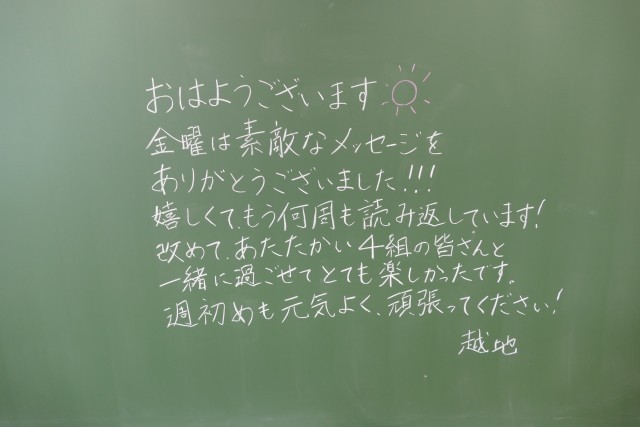 おはようございます
金曜は素敵なメッセージを
ありがとうございました!!!
嬉しくて、もう何周も読み返しています!
改めて、あたたかい4組の皆さんと
一緒に過ごせてとても楽しかったです。
週初めも元気よく、頑張ってください!
越地